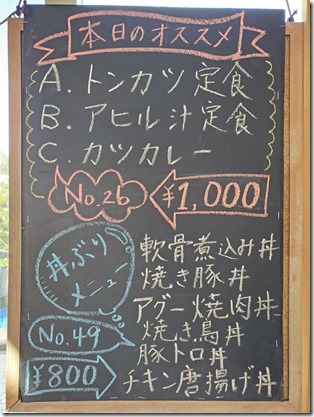 本日のオススメ
A. トンカツ定食
B. アヒル汁定食
C. カツカレー
No.26 ¥1,000
丼ぶり
メニュー
軟骨煮込み丼
焼き豚丼
アグー焼肉丼
焼き鳥丼
豚トロ丼
チキン唐揚げ丼
No.49
¥800